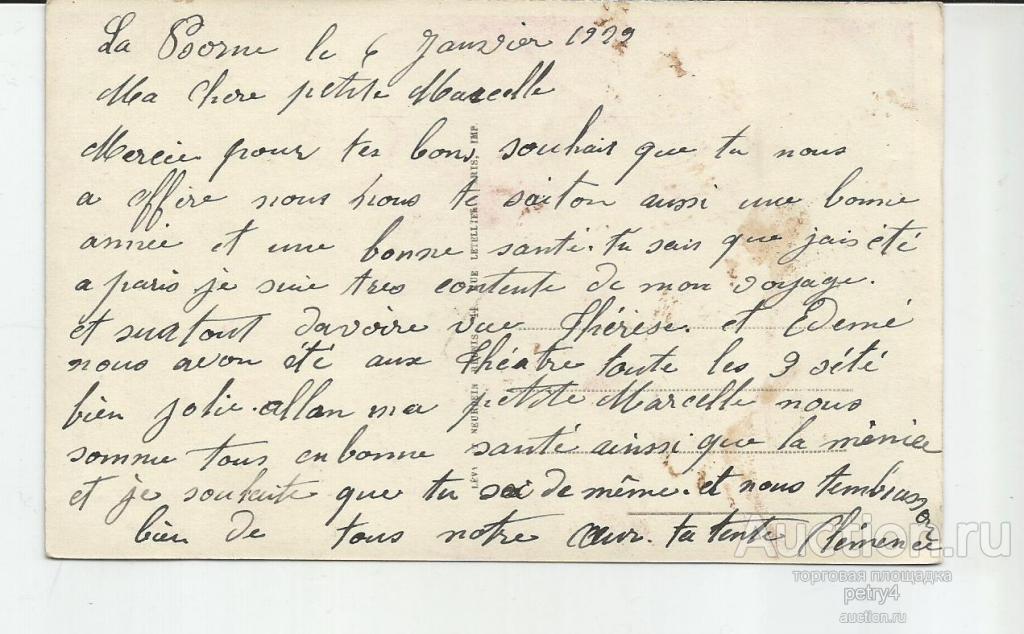 La Borne le 6 Janvier 1929
Ma chere petite Marcelle
Mercie pour tes bons souhait que tu nous
a offire nous nous te saiton aussi une bonne
année et une bonne santé. tu sais que jais été
a paris je suie tres contente de mon voyage.
et surtout davoire vue Thérèse. et Edemé
nous avon été aux théatre toute les 3 sété
bien jolie. allon ma petite Marcelle nous
somme tous en bonne santé ainsi que la mémée
et je souhaite que tu soi de même. et nous tembrasson
bien de tous notre cœur. ta tente Clémence
LÉVY NEURDEIN RÉUNIS, 44, RUE LETELLIER, PARIS, IMP.
Auction.ru
торговая площадка
petry4
auction.ru